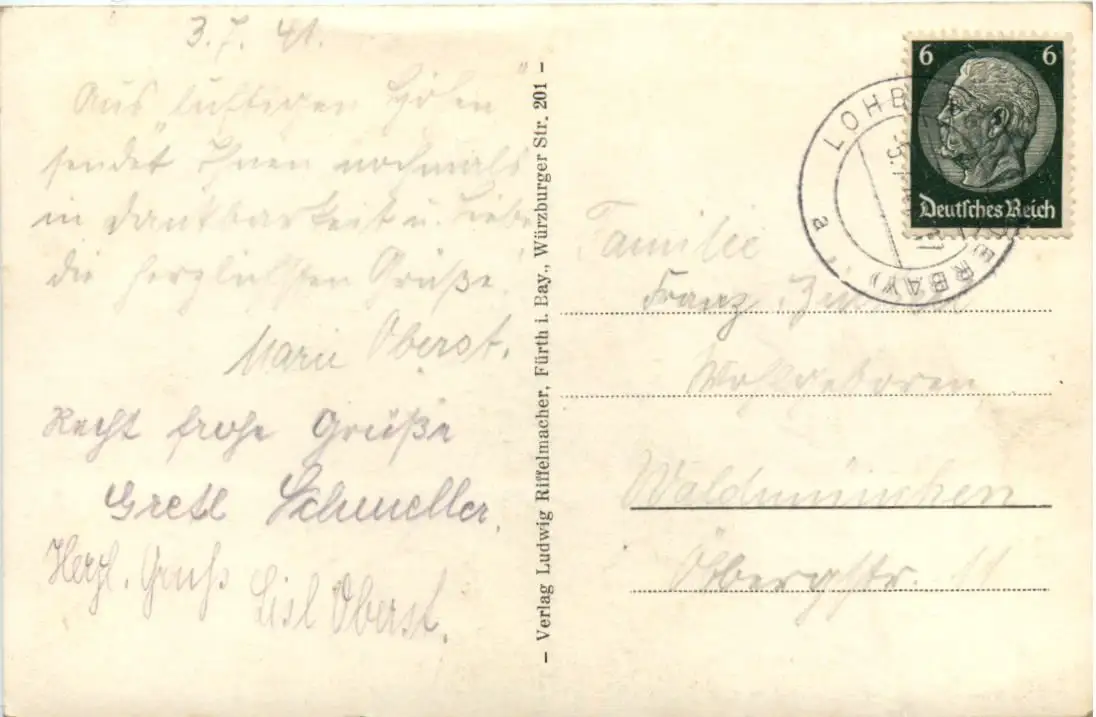 3.7.41.
Aus "luftigen Höhen"
sendet Ihnen nochmals
in Dankbarkeit u. Liebe
die herzlichsten Grüße
Marie Oberst.
Recht frohe Grüße
Gretl Schmeller.
Herzl. Gruß Lisl Oberst.
– Verlag Ludwig Riffelmacher, Fürth i. Bay., Würzburger Str. 201 –
6 6
Deutsches Reich
LOHB
ERBAY)
a
Familie
Franz
Wohlgeboren
Waldmünchen
Ösbergstr. 11